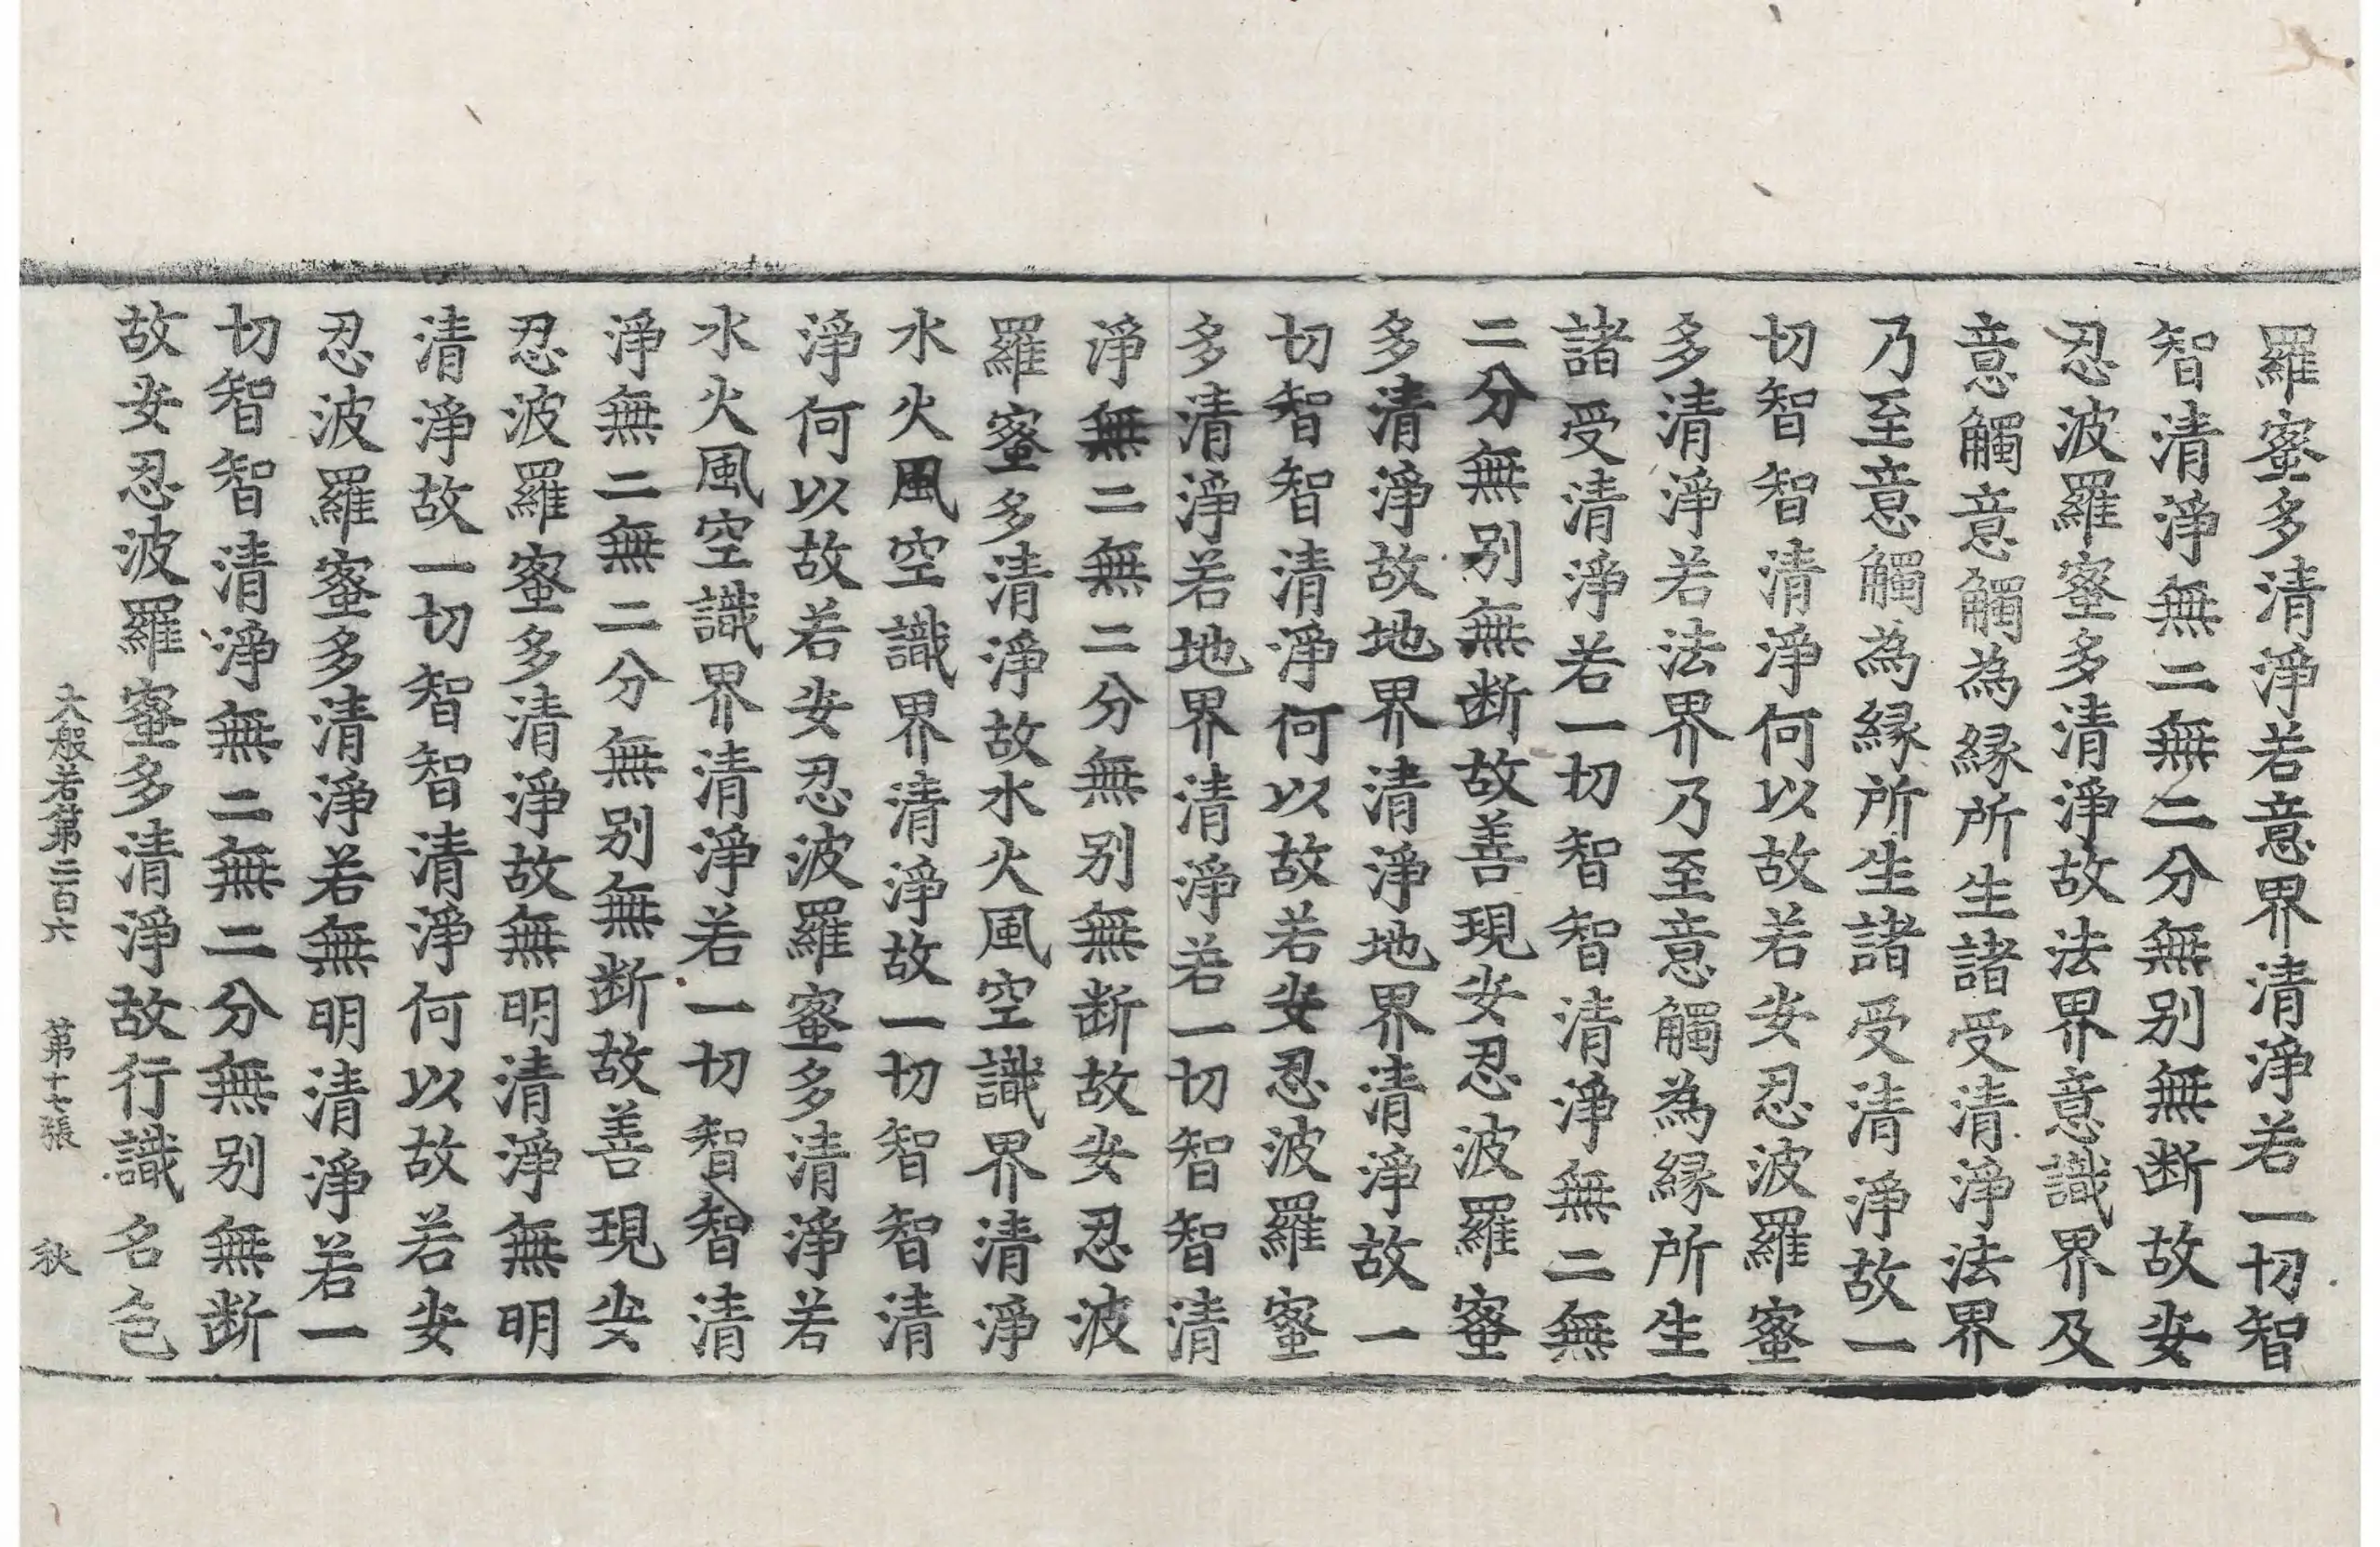 羅蜜多清淨若意界清淨若一切智
智清淨無二無二分無别無断故安
忍波羅蜜多清淨故法界意識界及
意觸意觸為縁所生諸受清淨法界
乃至意觸為縁所生諸受清淨故一
切智智清淨何以故若安忍波羅蜜
多清淨若法界乃至意觸為縁所生
諸受清淨若一切智智清淨無二無
二分無别無断故善現安忍波羅蜜
多清淨故地界清淨地界清淨故一
切智智清淨何以故若安忍波羅蜜
多清淨若地界清淨若一切智智清
淨無二無二分無别無断故安忍波
羅蜜多清淨故水火風空識界清淨
水火風空識界清淨故一切智智清
淨何以故若安忍波羅蜜多清淨若
水火風空識界清淨若一切智智清
淨無二無二分無别無断故善現安
忍波羅蜜多清淨故無明清淨無明
清淨故一切智智清淨何以故若安
忍波羅蜜多清淨若無明清淨若一
切智智清淨無二無二分無别無断
故安忍波羅蜜多清淨故行識名色
大般若第二百六 第十七張 秋